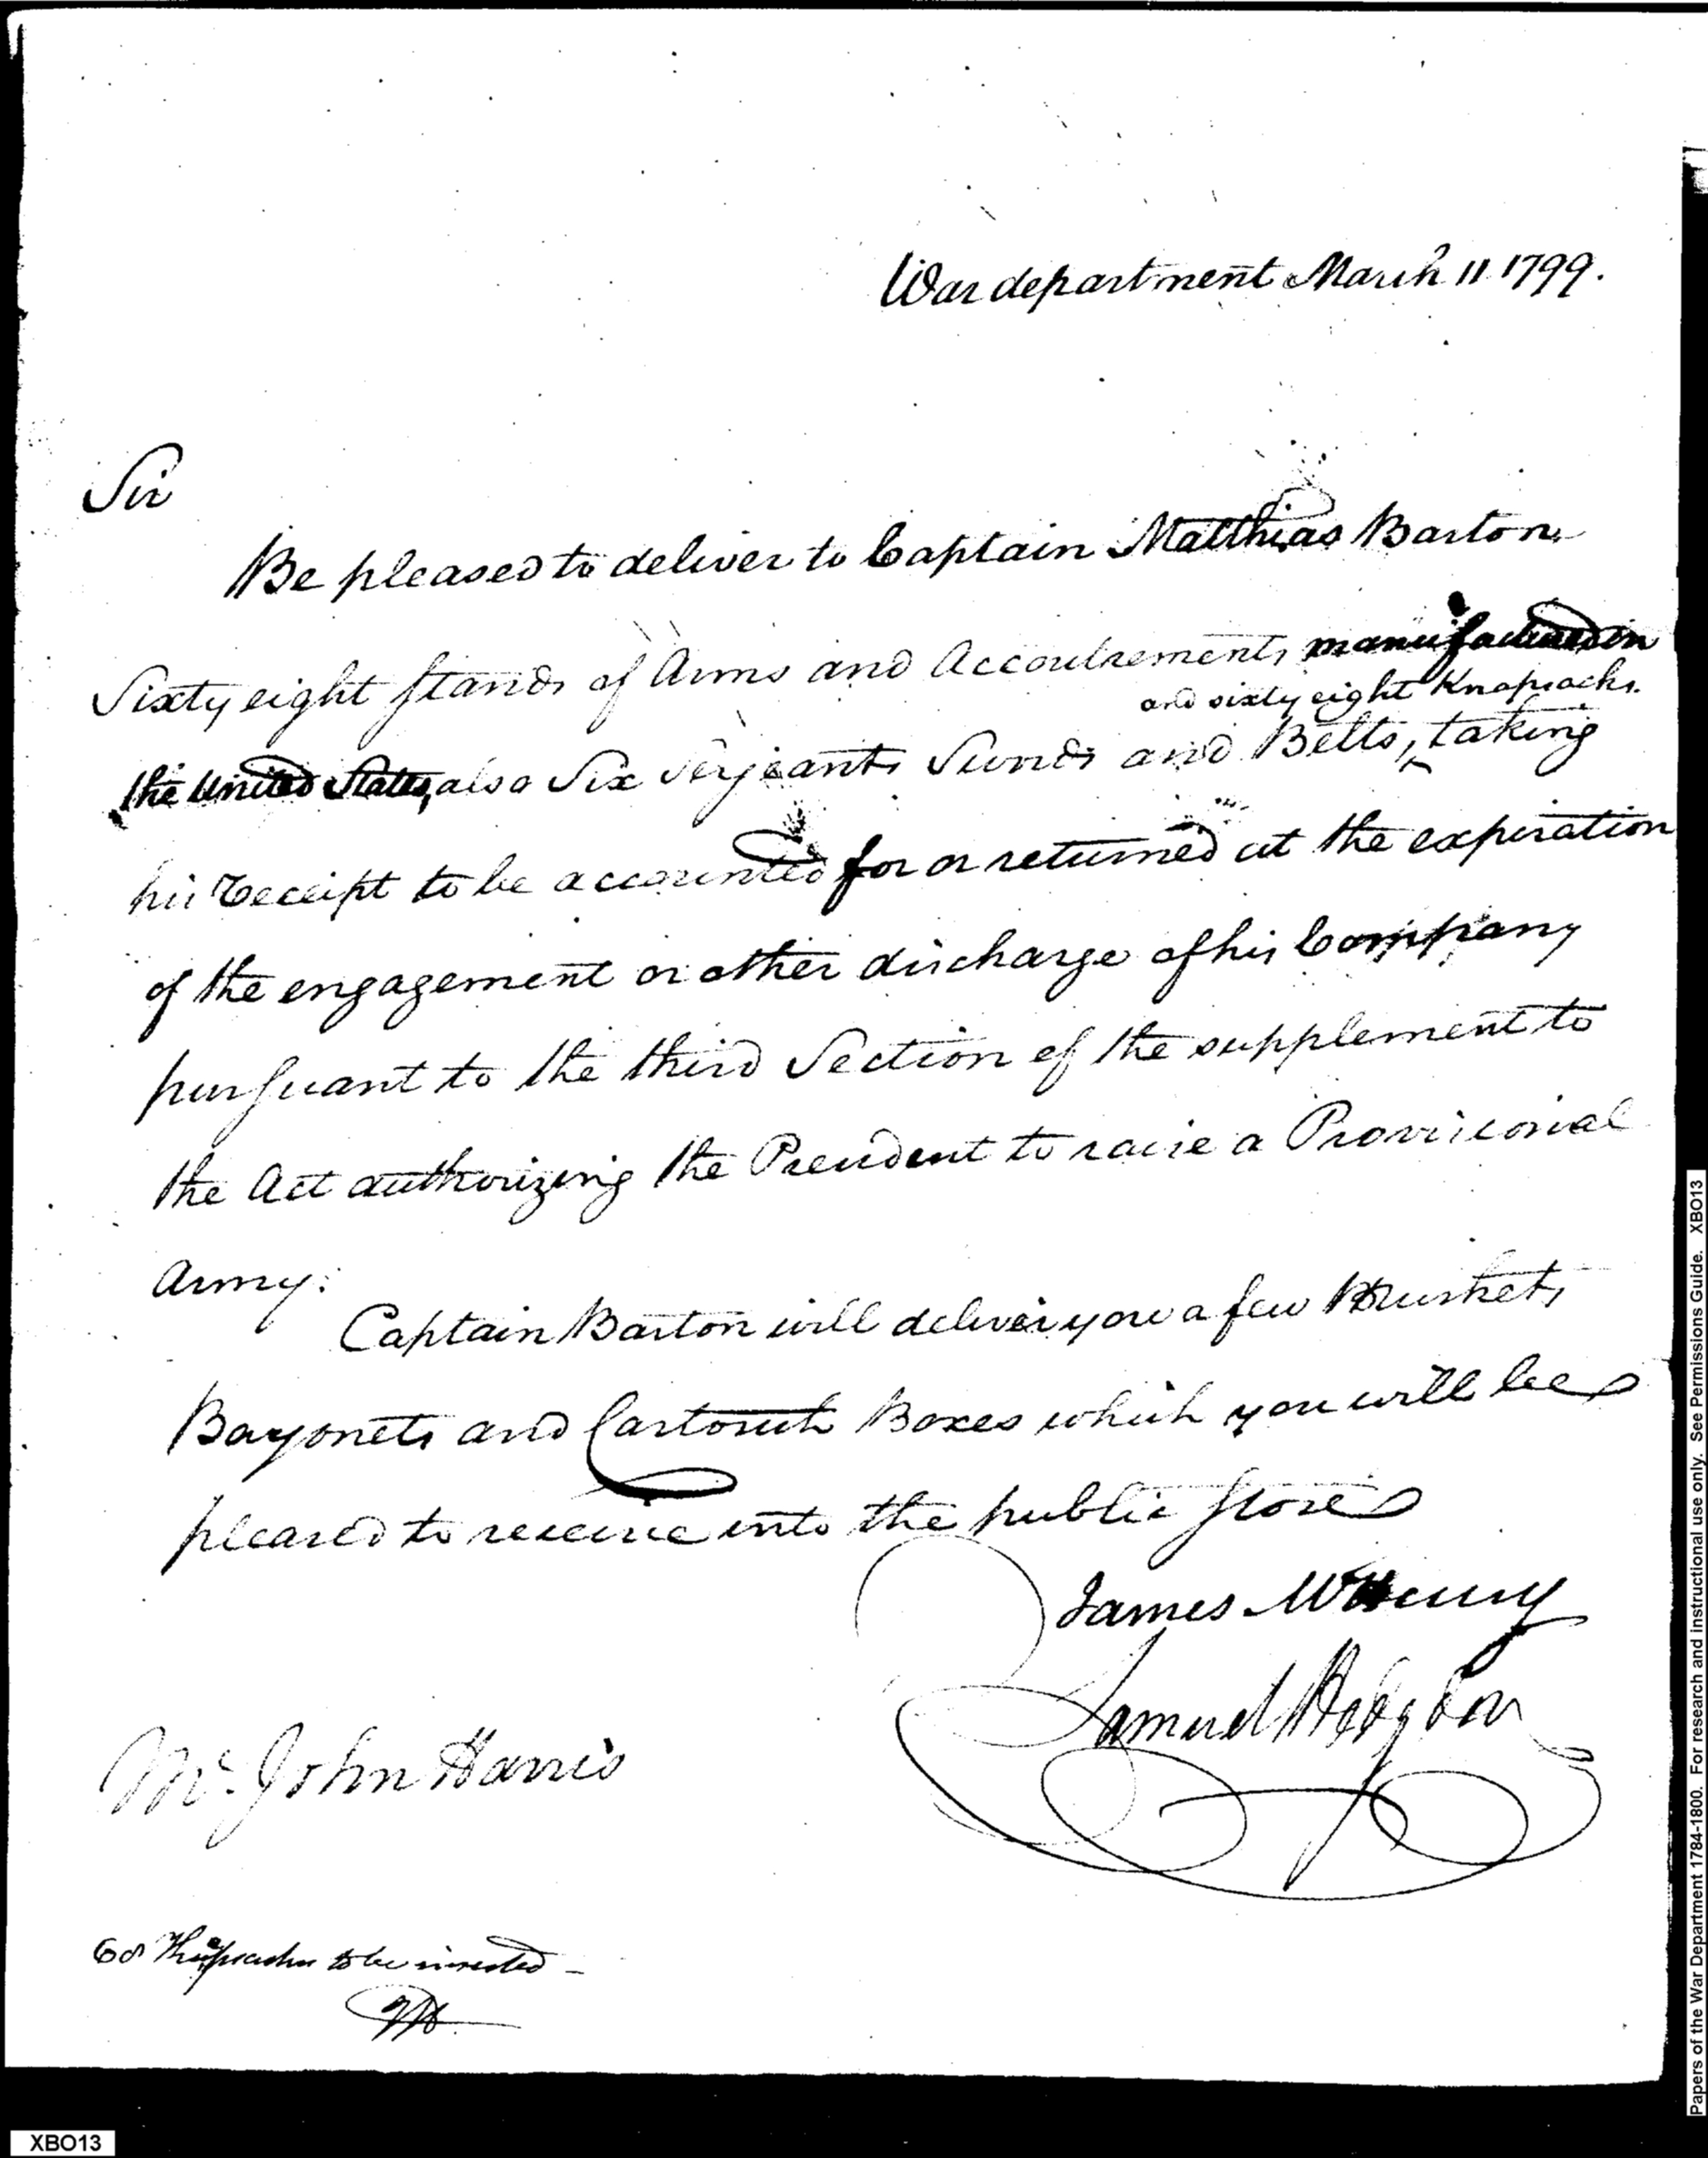 War department March 11 1799.
Sir
Be pleased to deliver to Captain Matthias Barton
Sixty eight stands of Arms and Accoutrements manufactured in
and sixty eight Knapsacks.
the United States, also Six Serjeants Swords and Belts, taking
his Receipt to be accounted for or returned at the expiration
of the engagement or other discharge of his Company
pursuant to the third Section of the supplement to
the Act authorizing the President to raise a Provisional
Army:
Captain Barton will deliver you a few Muskets
Bayonets and Cartouch Boxes which you will be
pleased to receive into the public store
James McHenry
Samuel Hodgdon
Mr. John Harris
68 Knapsacks to be inserted -
XBO13
Papers of the War Department 1784-1800. For research and instructional use only. See Permissions Guide. XBO13